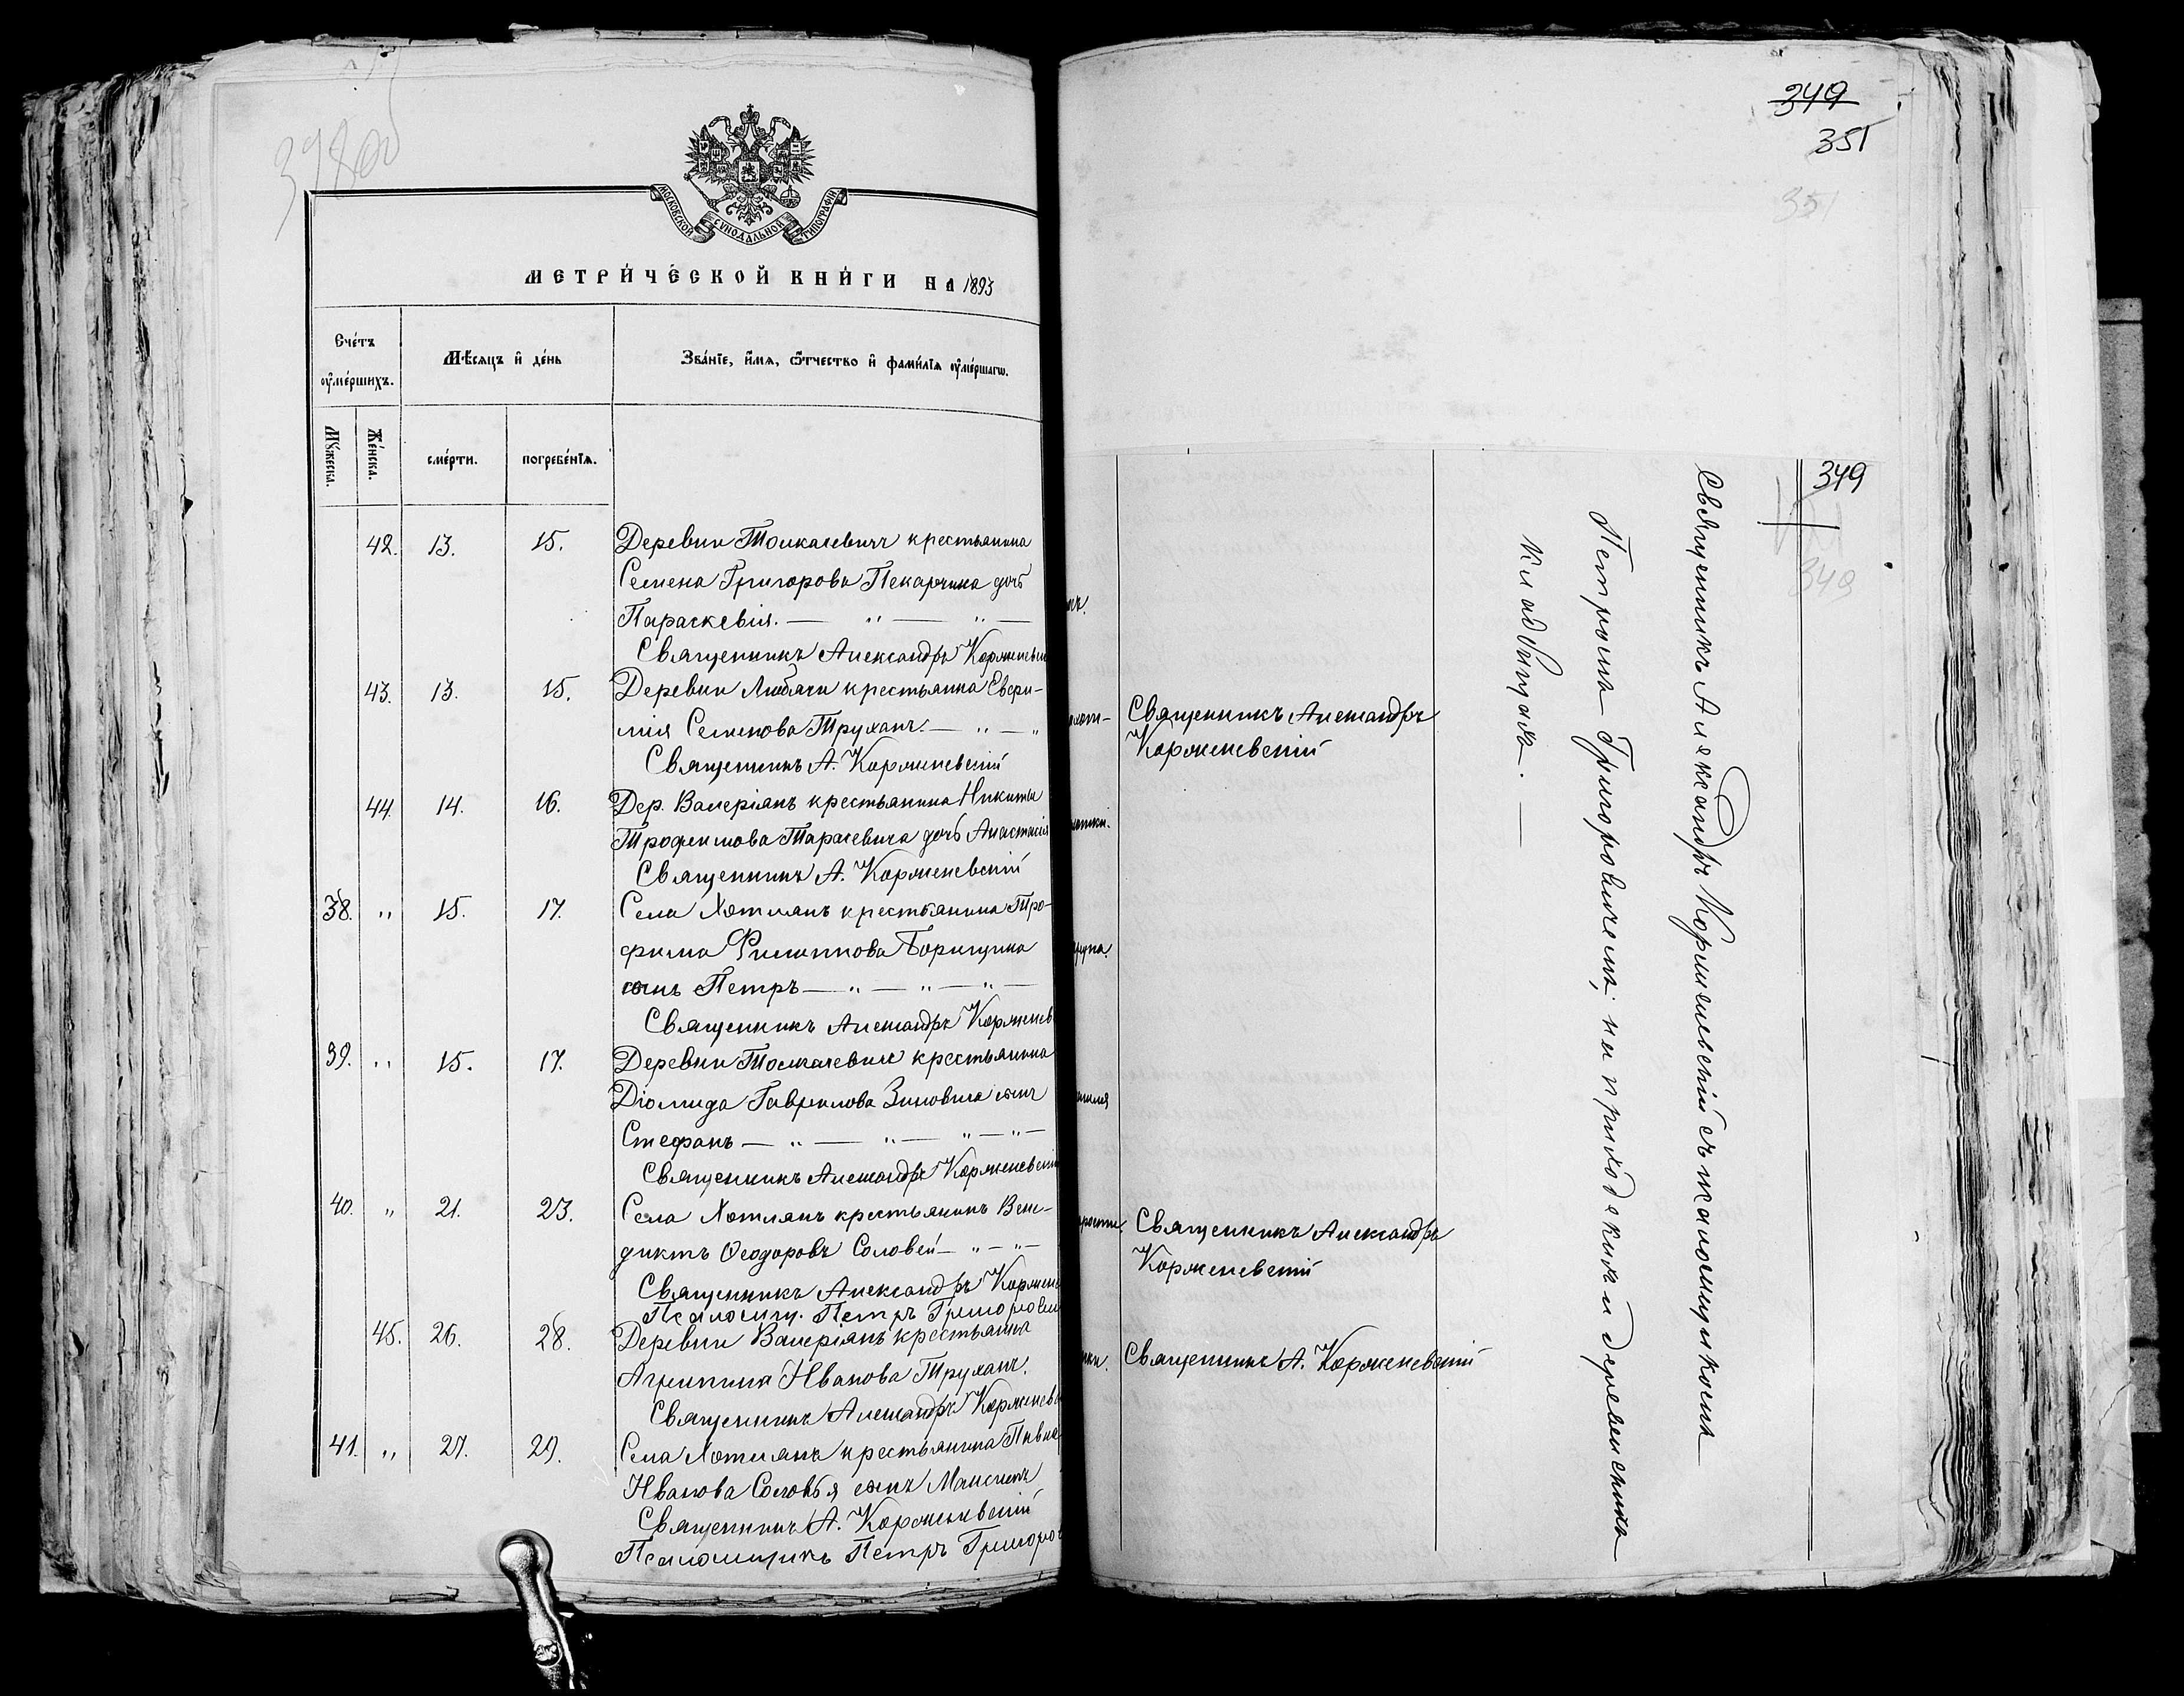 348 об
МОСКОВСКОЙ СѴНОДАЛЬНОЙ ТИПОГРАФІИ
МЕТРИ́ЧЕСКОЙ КНИ́ГИ НА 1893
Сче́тъ ᲂу҆ме́ршихъ.
Мѣ́сяцъ и҆ де́нь
Зва́нїе, и҆́мѧ, ѻ҆́тчество и҆ фами́лїѧ ᲂу҆ме́ршагѡ.
Мꙋ́жеска.
Же́нска.
сме́рти.
погребе́нїѧ.
42. 13. 15. Деревни Толкачевичъ крестьянина
Семена Григорова Пекарчика дочь
Параскевія. — " — " —
Священникъ Александръ Корженев
43. 13. 15. Деревни Любячи крестьянка Евфи-
мія Семенова Труханъ. — " — "
Священникъ А. Корженевскій
44. 14. 16. Дер. Валеріянъ крестьянина Никиты
Трофимова Тарасевича дочь Анастасія
Священникъ А. Корженевскій
38. " 15. 17. Села Хотлянъ крестьянина Тро-
фима Филиппова
сынъ Петръ — " — " — " —
Священникъ Александръ Корженев
39. " 15. 17. Деревни Толкачевичъ крестьянина
Діомида Гаврилова Зиновича сынъ
Стефанъ — " — " — " — " —
Священникъ Александръ Корженевскій
40. " 21. 23. Села Хотлянъ крестьянинъ Вене-
диктъ Ѳеодоровъ Соловей — " — " —
Священникъ Александръ Коржене
Псаломщ. Петръ Григорович
45. 26. 28. Деревни Валеріянъ крестьянка
Агрипина Иванова Труханъ.
Священникъ Александръ Корженевс
41. " 27. 29. Села Хотлянъ крестьянина
Иванова Соловья сынъ Максимъ
Священникъ А. Корженевскій
Псаломщикъ Петръ Григоров
349
351
351
349
349
Священникъ Александръ
Корженевскій
Священникъ Александръ
Корженевскій
Священникъ А. Корженевскій
Священникъ Александръ Корженевскій съ псаломщикомъ
Петромъ Григоровичемъ, на приходскихъ деревенскихъ
кладбищахъ. —